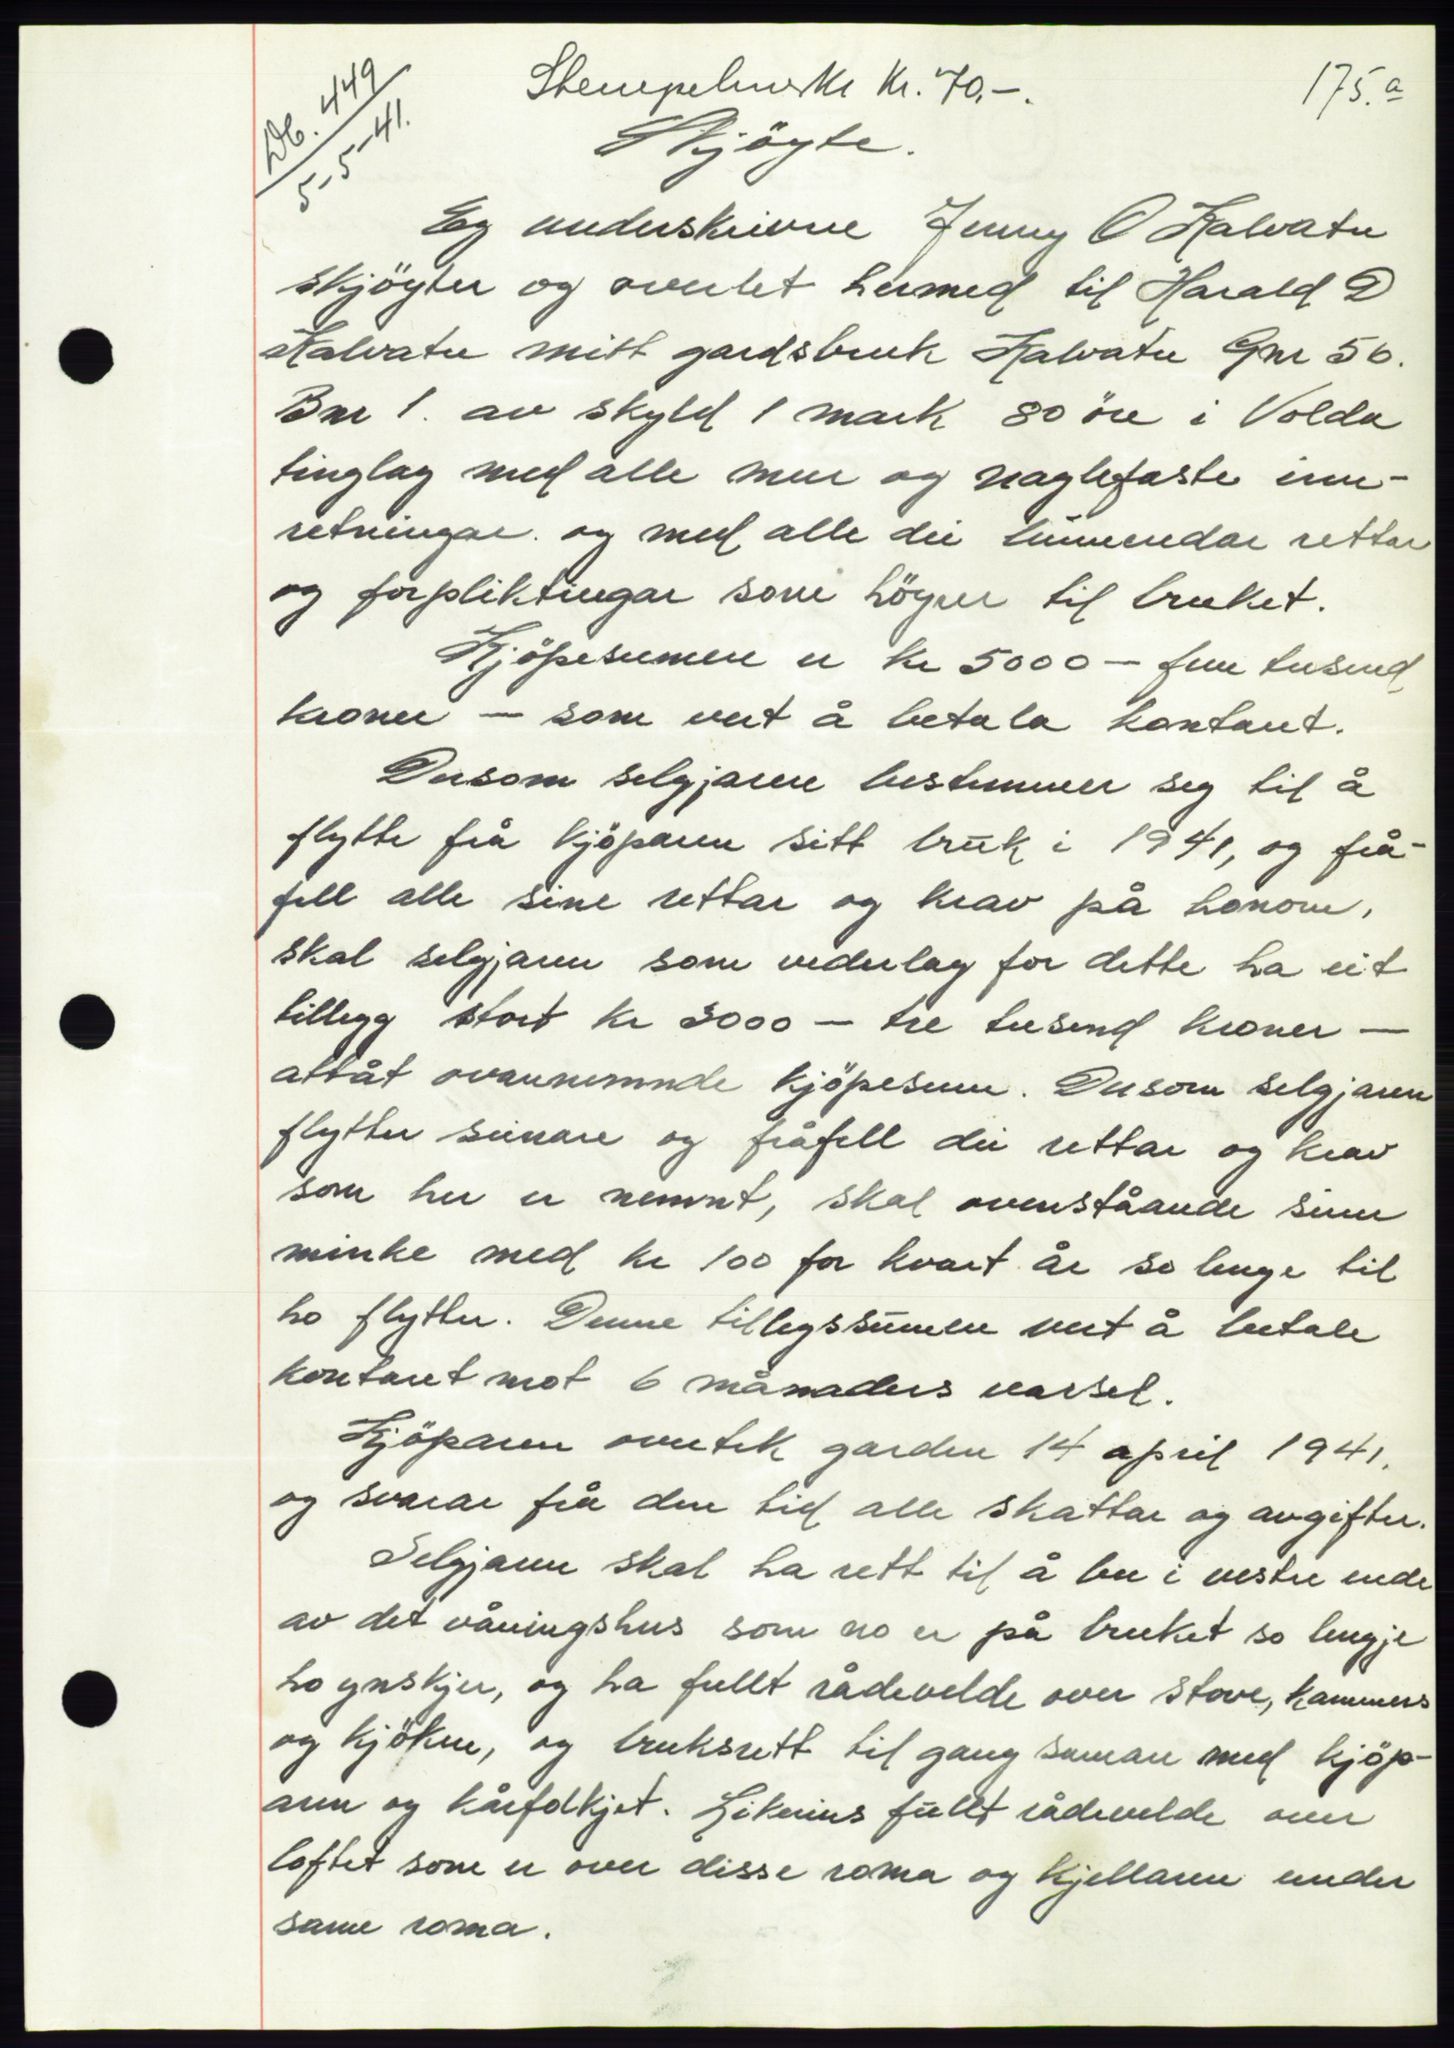 Db. 449
5-5-41.
Stempelmerke Kr. 70,-.
175.a
Skjöyte.
Eg underskrivne Jenny O Kalvatn
skjöyter og overlet hermed til Harald D
Kalvatn mitt gardsbruk Kalvatn Gnr 56.
Bnr 1. av skyld 1 mark 80 öre i Volda
tinglag med alle mur og naglefaste inn-
retningar. og med alle dei tilliggendar rettar
og forpliktingar som höyrer til bruket.
Kjöpesumen er kr 5000 - fem tusend
kroner - som vert å betala kontant.
Dersom selgjaren bestemmer seg til å
flytte frå kjöparen sitt bruk i 1941, og frå-
fell alle sine rettar og krav på honom,
skal selgjaren som vederlag for dette ha eit
tillegg stort kr 3000 - tre tusend kroner -
attåt ovannemnde kjöpesum. Dersom selgjaren
flytter seinare og fråfell dei rettar og krav
som her er nemnt, skal ovenståande sum
minke med kr 100 for kvart år so lenge til
ho flytter. Denne tilleggssumen vert å betale
kontant mot 6 månaders varsel.
Kjöparen overtek garden 14 april 1941.
og svarar frå den tid alle skattar og avgifter.
Selgjaren skal ha rett til å bu i vestre ende
av det våningshus som no er på bruket so lengje
ho ynskjer, og ha fullt rådevelde over stove, kammers
og kjöken, og bruksrett til gang saman med kjöp-
aren og kårfolkjet. Likeins fullt rådevelde over
loftet som er over disse roma og kjellaren under
same roma.